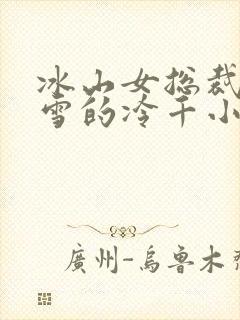 冰山女总裁
雪的冷千小
廣州-烏魯木齊